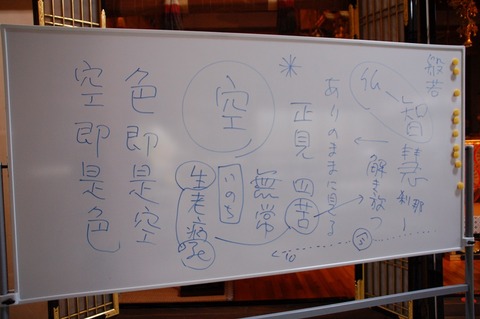 般若
仏
智慧
刹那
解き放つ
S
10
ありのままに見る
正見 四苦
無常
いのち
空
生老病死
色即是空
空即是色